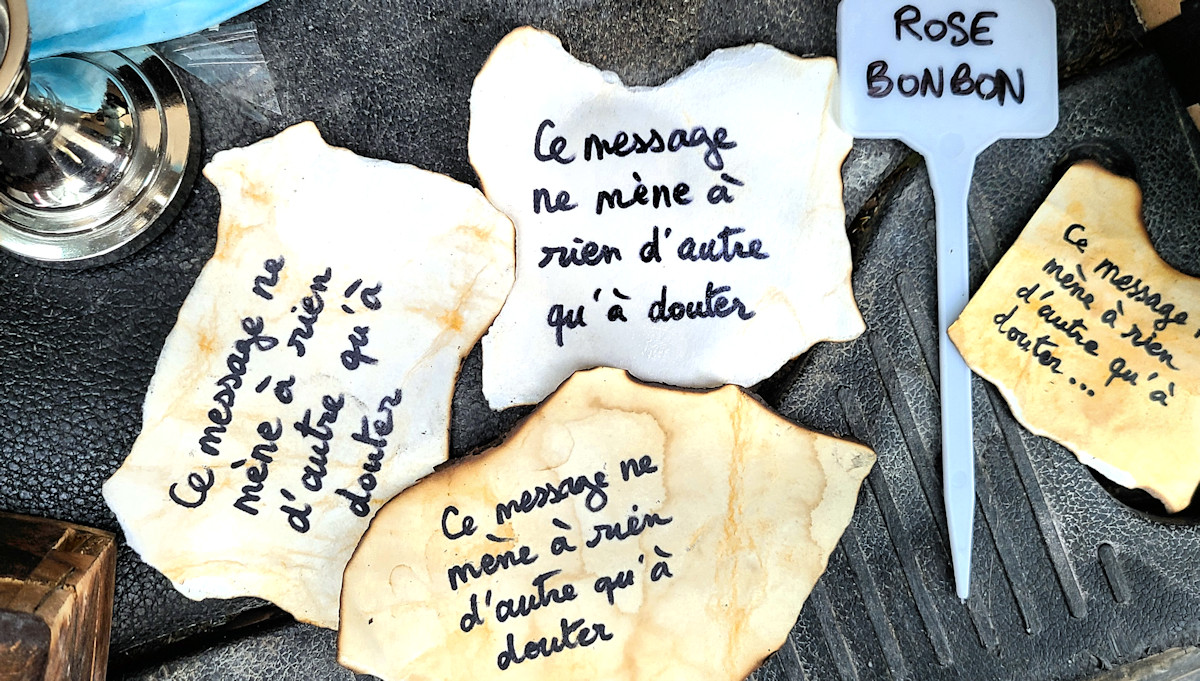 ROSE
BONBON
Ce message
ne mène à
rien d'autre
qu'à douter
Ce message ne
mène à rien
d'autre qu'à
douter
Ce message ne
mène à rien
d'autre qu'à
douter
Ce message
mène à rien
d'autre qu'à
douter...